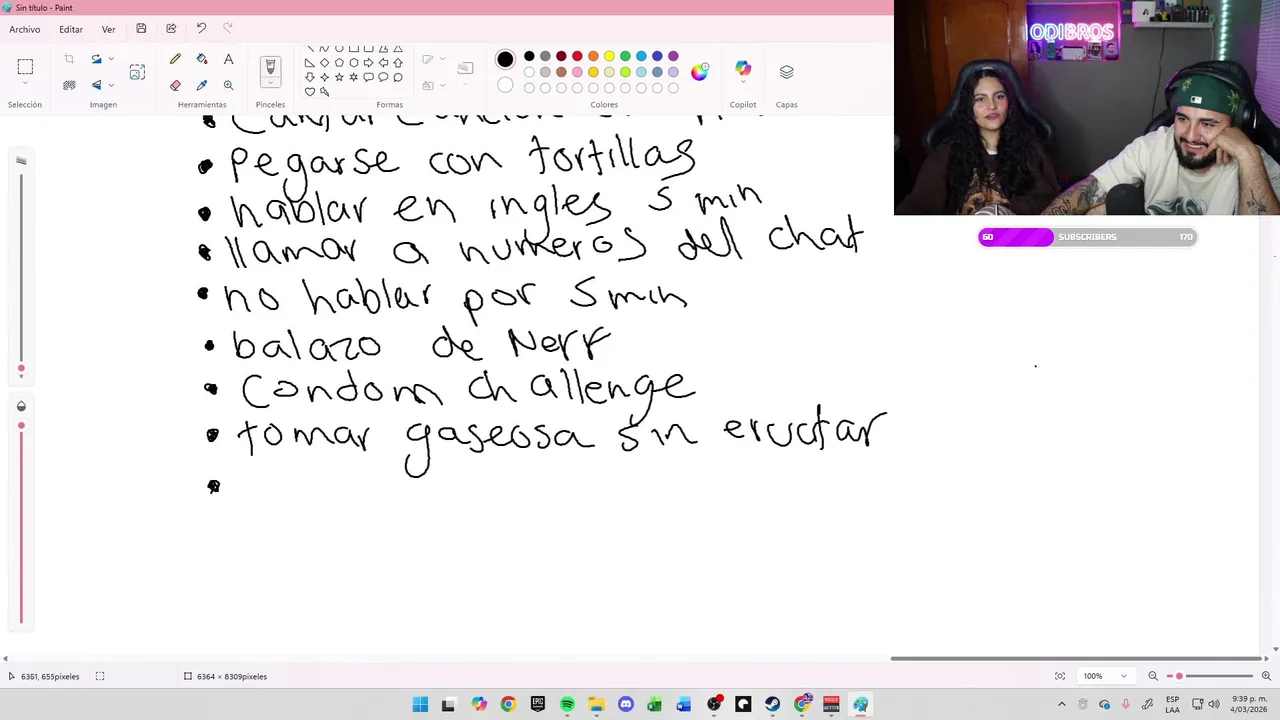 Sin título - Paint
Archivo Editar Ver
Selección Imagen Herramientas Pinceles Formas Colores Copilot Capas
ODIBROS
60 SUBSCRIBERS 170
• Pegarse con tortillas
• hablar en ingles 5 min
• llamar a numeros del chat
• no hablar por 5 min
• balazo de Nerf
• Condom challenge
• tomar gaseosa sin eructar
•
6351, 655píxeles 6364 × 8309píxeles 100%
ESP LAA 9:39 p. m. 4/03/2026